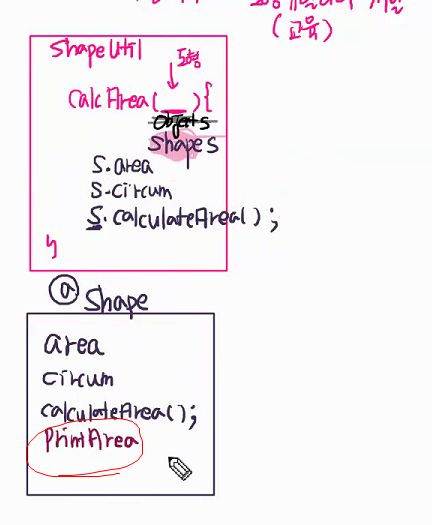 (교육)
ShapeUtil
도형
CalcArea( __ ){
Object s
Shape s
S.area
S.circum
S.calculateArea();
}
ⓐ Shape
area
circum
calculateArea();
PrintArea